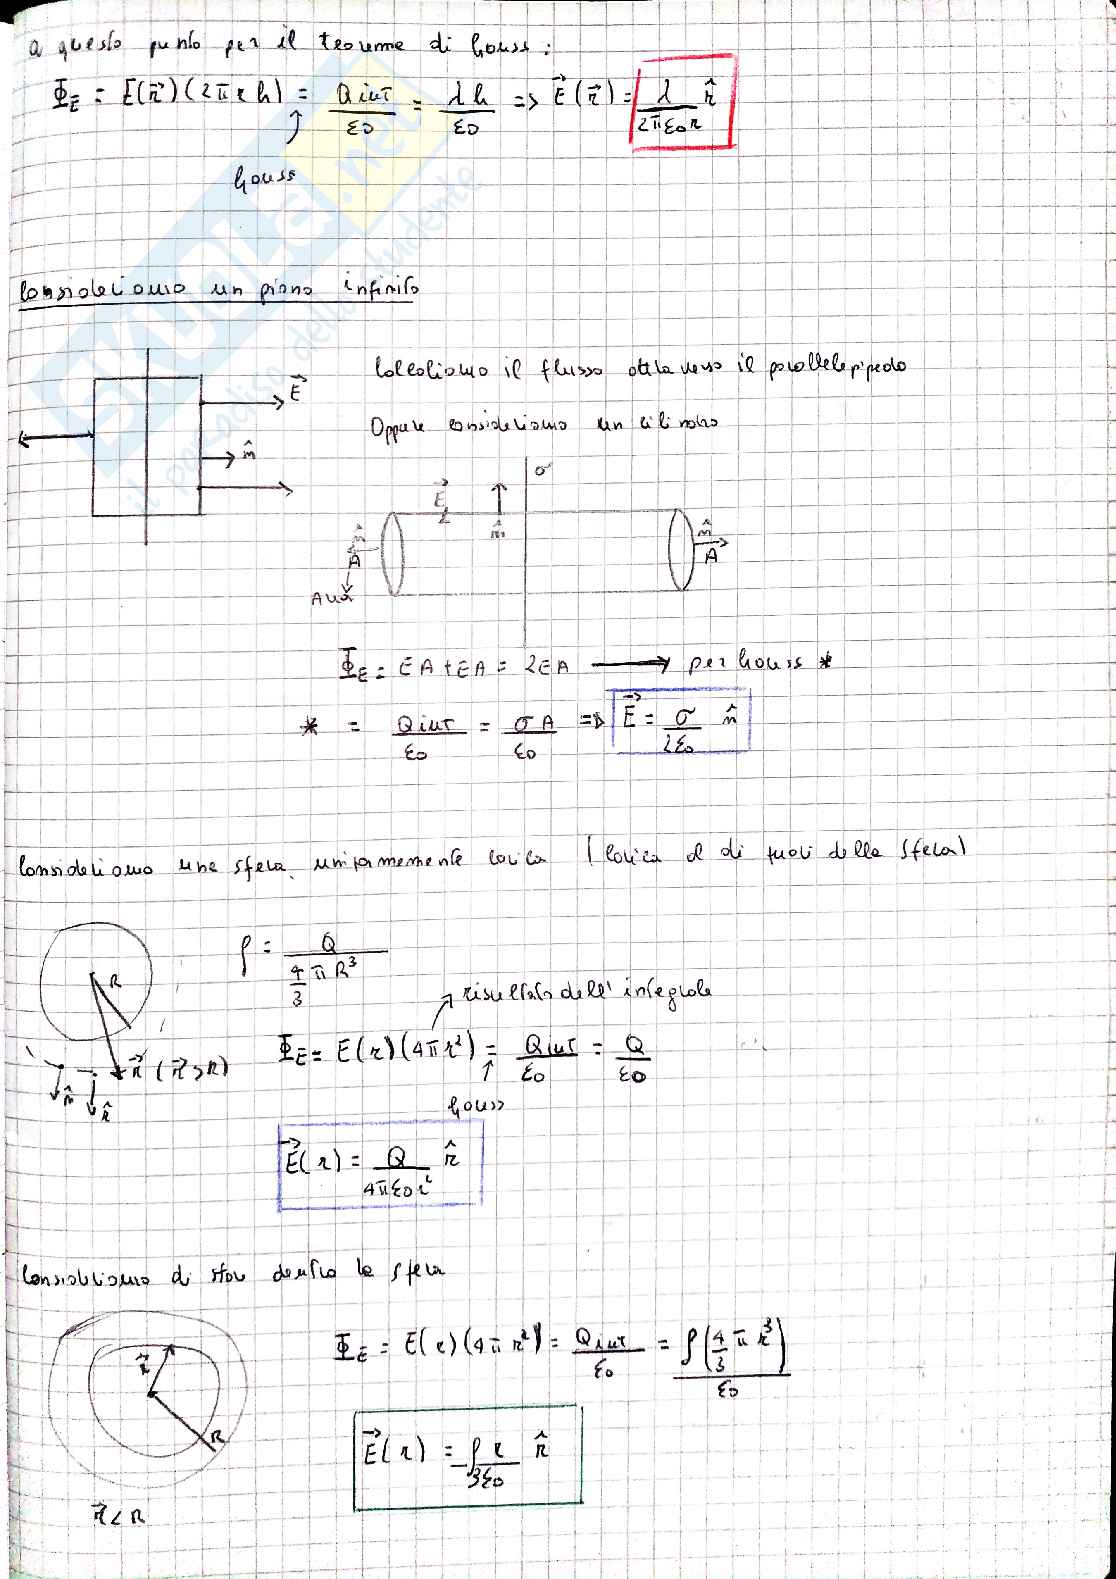 a questo punto per il teorema di Gauss:
Φ_E = E(r⃗)(2πrh) = Qint/ε0 = λh/ε0 => E⃗(r⃗) = λ/2πε0r r̂
Gauss
Consideriamo un piano infinito
Calcoliamo il flusso attraverso il parallelepipedo
E⃗
Oppure consideriamo un cilindro
n̂
σ
E⃗
n̂
n̂
A
n̂
A
Φ_E = EA + EA = 2EA → per Gauss *
* = Qint/ε0 = σA/ε0 => E⃗ = σ/2ε0 n̂
Consideriamo una sfera uniformemente carica (carica al di fuori della sfera)
ρ = Q/(4/3 πR³)
R
risultato dell'integrale
Φ_E = E(r)(4πr²) = Qint/ε0 = Q/ε0
r⃗ (r⃗>R)
n̂
r̂
Gauss
E⃗(r) = Q/4πε0r² r̂
Consideriamo di stare dentro la sfera
Φ_E = E(r)(4πr²) = Qint/ε0 = ρ(4/3 πr³)/ε0
r⃗
R
E⃗(r) = ρr/3ε0 r̂
r⃗<R
SKUOLA.net
il paradiso dello studente